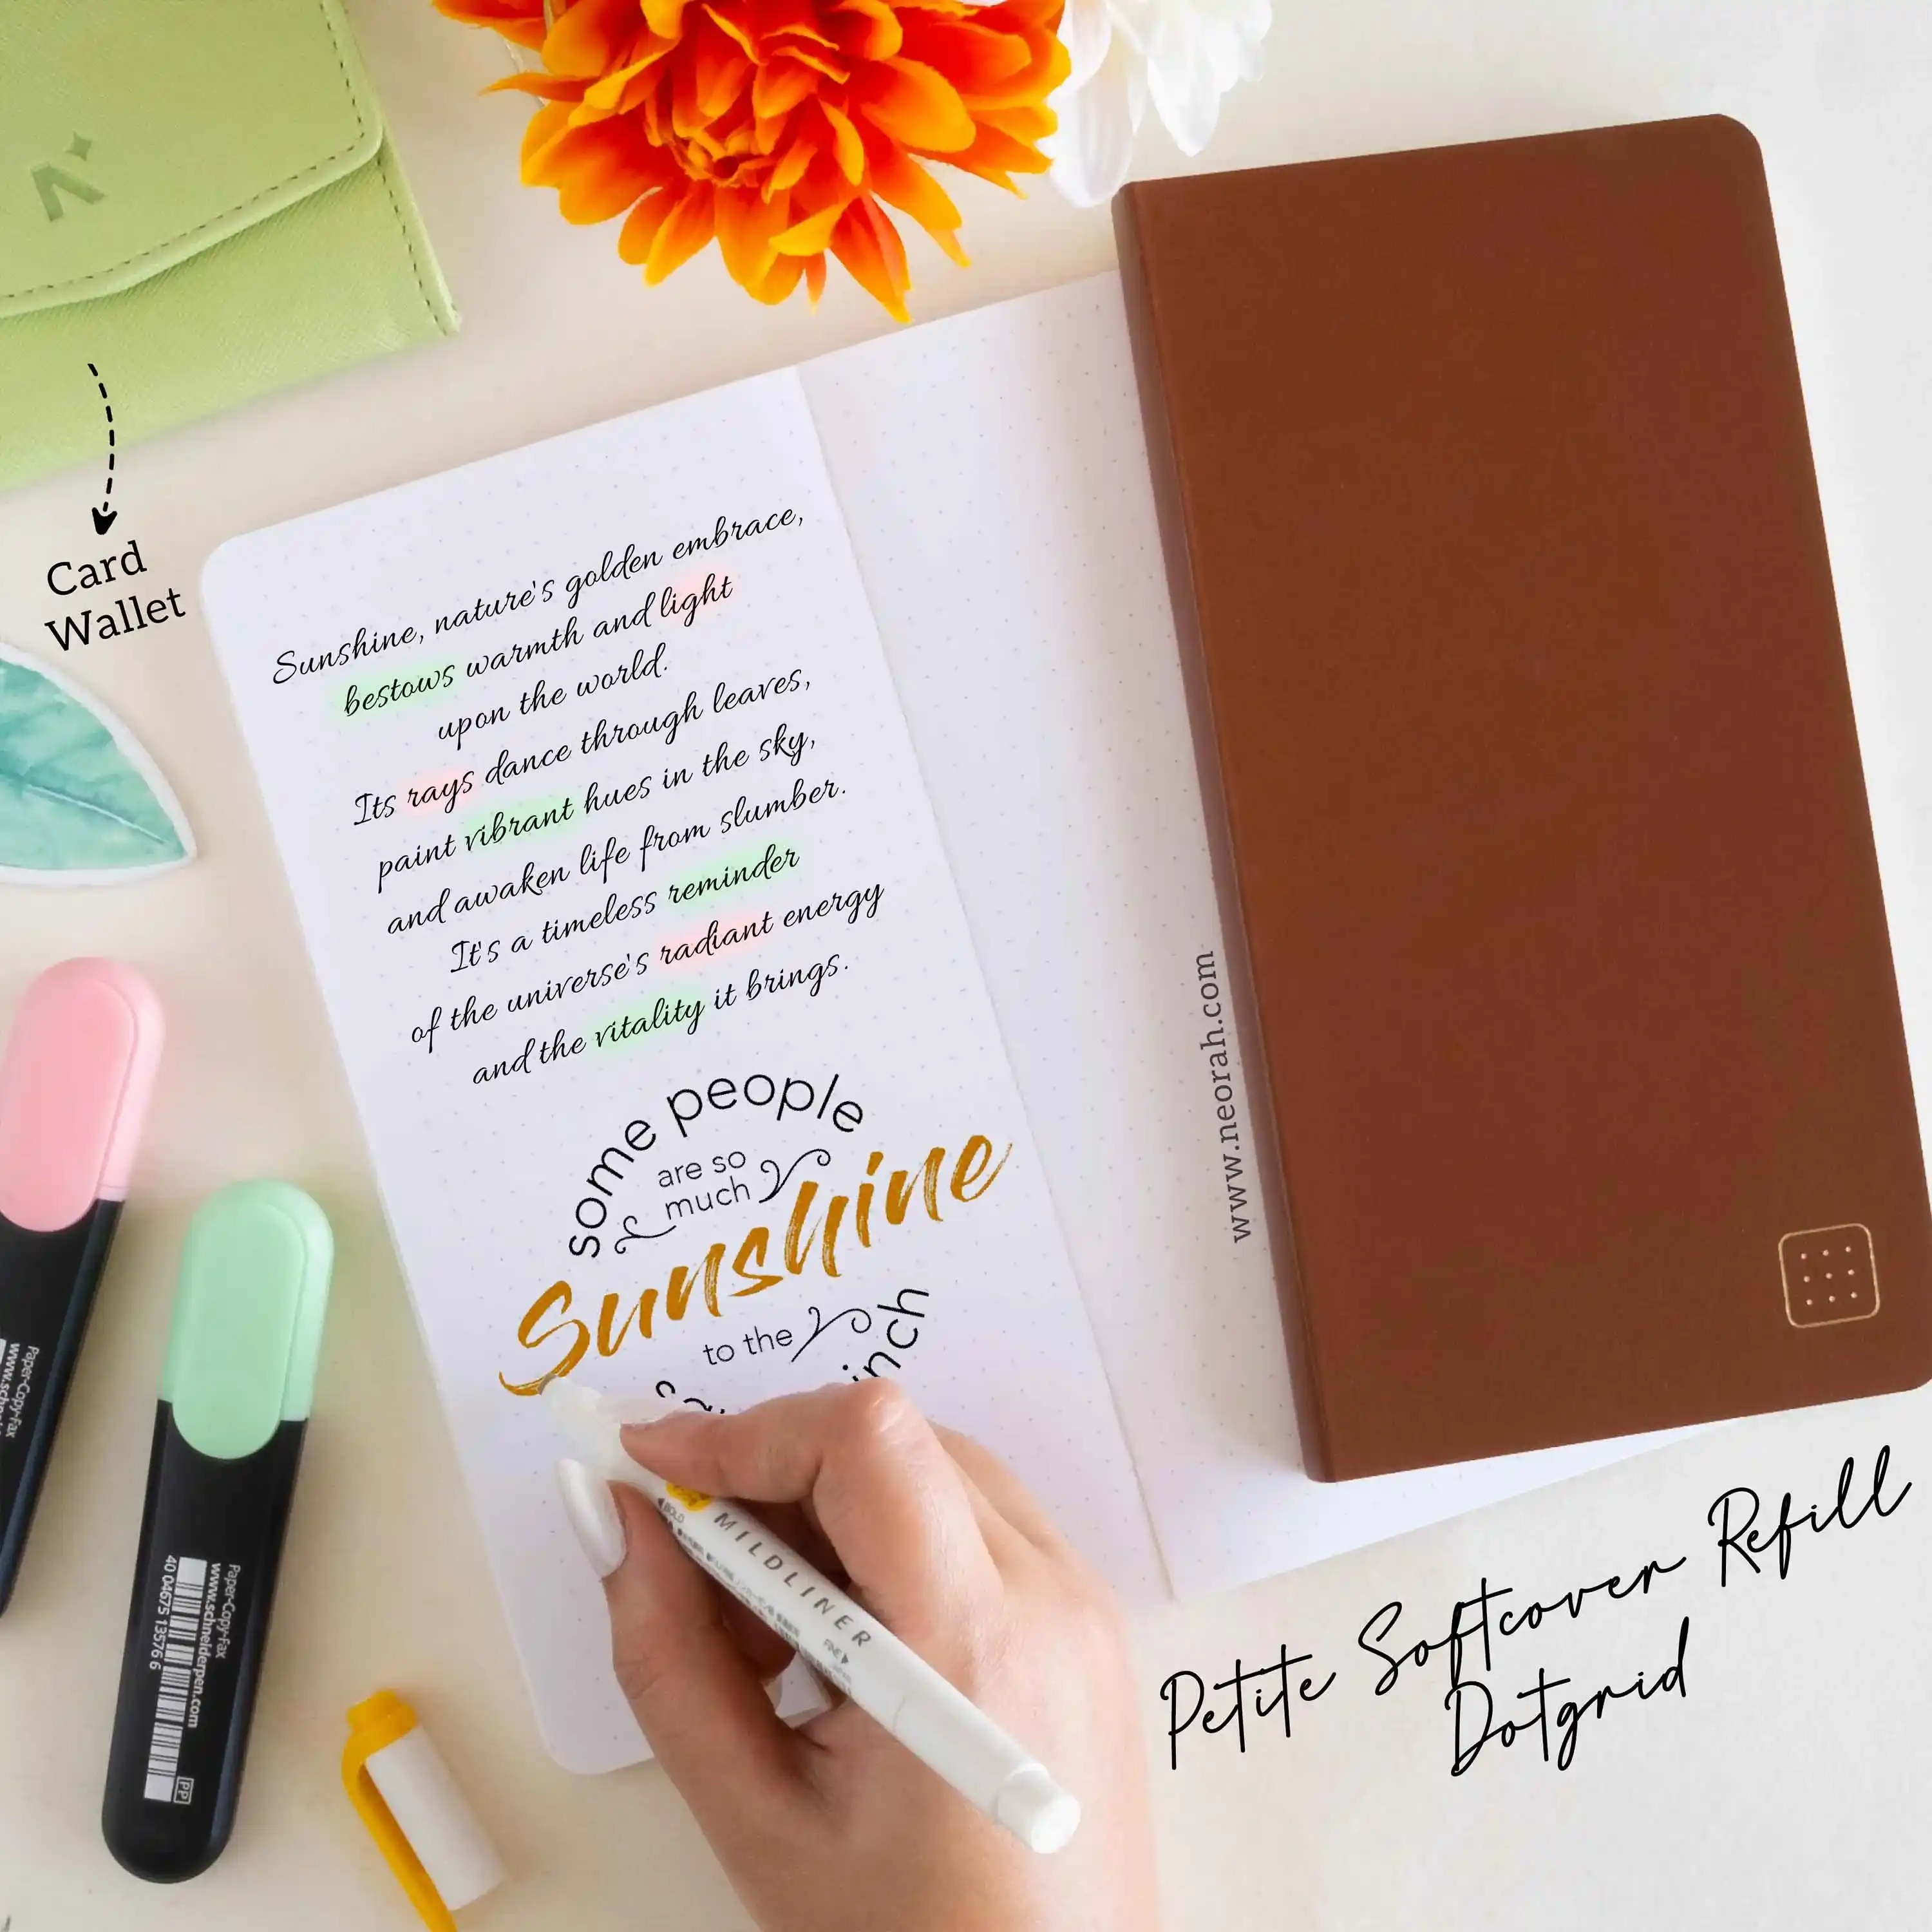 Card
Wallet
Sunshine, nature's golden embrace,
bestows warmth and light
upon the world.
Its rays dance through leaves,
paint vibrant hues in the sky,
and awaken life from slumber.
It's a timeless reminder
of the universe's radiant energy
and the vitality it brings.
some people
are so
much
Sunshine
to the
inch
www.neorah.com
Petite Softcover Refill
Dotgrid
MILDLINER
BOLD
FINE
Paper-Copy-Fax
Paper-Copy-Fax
www.schneiderpen.com
40 04675 13576 6
PP